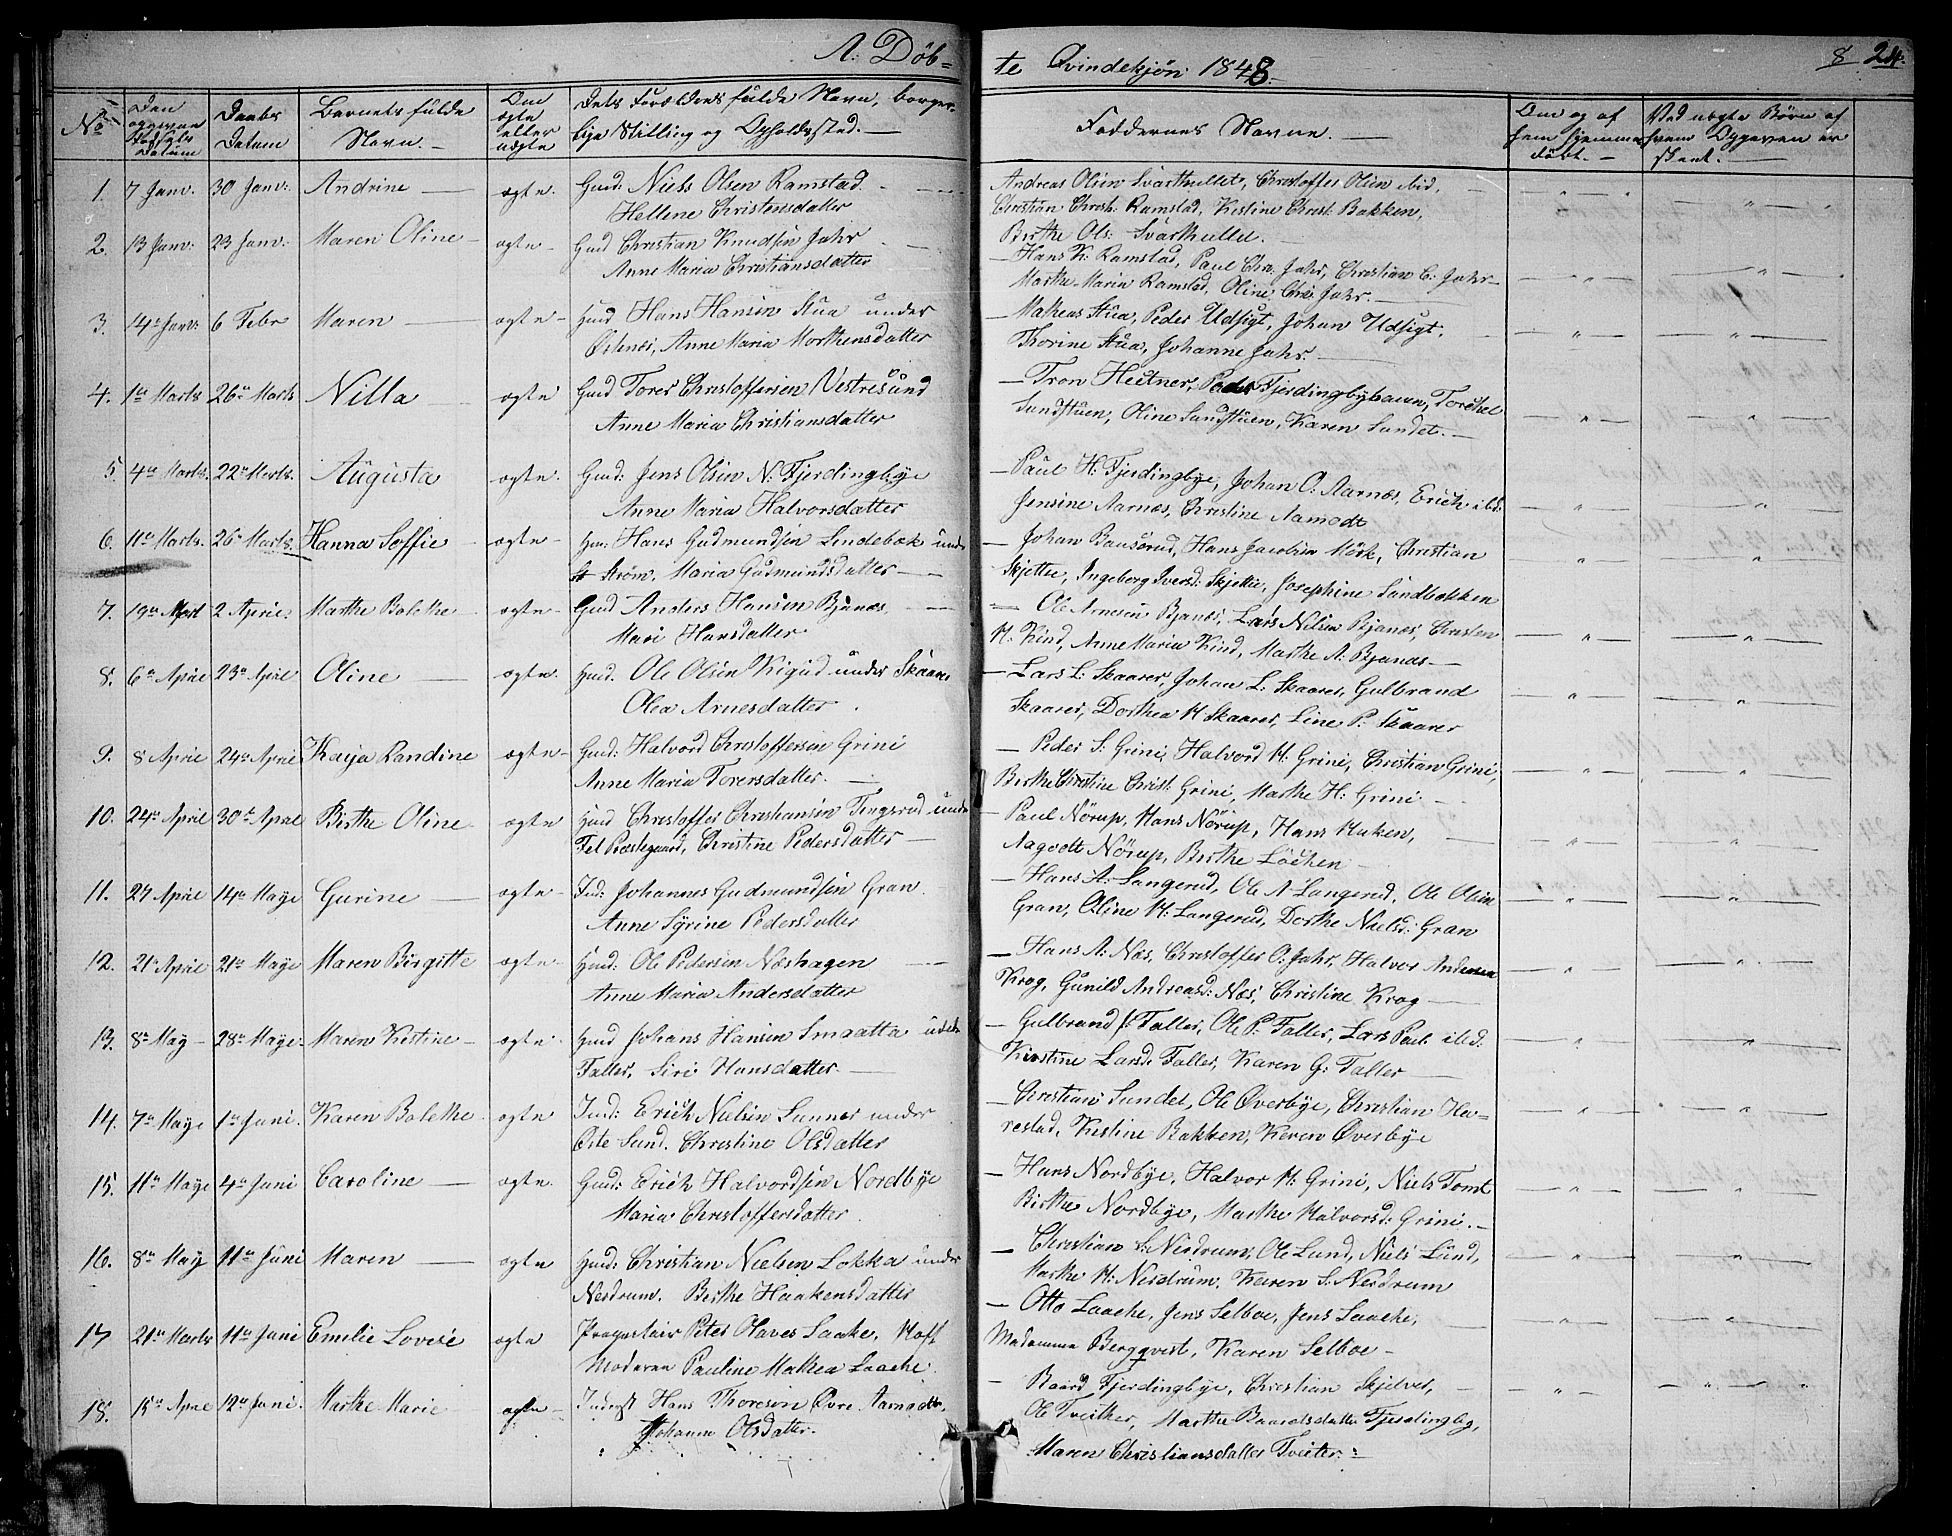 A: Døb-
te Qvindekjøn 1848.
8 24.
No
Den opgivne Fødsels Datum
Daabs Datum
Barnets fulde Navn.
Om ægte eller uægte
Dets Forældres fulde Navn, borgerlige Stilling og Opholdssted.
Faddernes Navne.
Om og af hvem hjemmedöbt.
Ved uægte Børn af hvem Opgaven er skeet.
1. 7 Janv. 30 Janv: Andrine ægte. Gmd: Niels Olsen Ramstad
Hellene Christensdatter
Andreas Olsen Svarthullet, Christoffer Olsen ibid,
Christian Christ: Ramstad, Kistine Christ: Bakken,
Birthe Ols: Svarthullet.
2. 13 Janv: 23 Janv: Maren Oline ægte Gmd Christian Knudsen Jahr
Anne Maria Christiansdatter
Hans K: Ramstad, Paul Chr: Jahr, Christian C: Jahr
Marthe Maria Ramstad, Oline Chr: Jahr.
3. 14de Janv: 6 Febr Maren ægte Gmd Hans Hansen Stua under
Østnæs, Anne Maria Morthensdatter
Matheas Stua, Peder Udsigt, Johan Udsigt,
Thorine Stua, Johanne Jahr.
4. 1ste Marts 26de Marts Nilla ægte Gmd Torer Christoffersen Vestresund
Anne Maria Christiansdatter
Tron Heitner, Peder Fjerdingbyhaven, Torchel
Sundstuen, Oline Sundstuen, Karen Sundet.
5. 4de Marts. 22de Marts. Augusta ægte. Gmd: Jens Olsen N: Fjerdingbye
Anne Maria Halvorsdatter
Paul H: Fjerdingbye, Johan O: Aarnæs, Erich ibd.
Jensine Aarnæs, Christine Aamodt
6. 11de Marts. 26de Marts. Hanna Soffie ægte Gm: Hans Gudmundsen Lindebæk under
Strøm, Maria Gudmundsdatter
Johan Bausørud, Hans Jacobsen Mörk, Christian
Skjetten, Ingeborg Iversd: Skjetten, Josephine Sandbækken
7. 19de Mart 2 April. Marthe Bolethe ægte Gmd Anders Hansen Bjanæs
Mari Hansdatter
Ole Arnesen Bjanæs, Lars Nilsen Bjanæs, Christen
H: Kind, Anne Maria Kind, Marthe A: Bjanæs
8. 6te April 23de April Oline ægte. Gmd. Ole Olsen Rigud under Skaarer
Olea Arnesdatter
Lars L: Skaarer, Johan L: Skaarer, Gulbrand
Skaarer, Dorthea H Skaarer, Line P: Skaarer
9. 8 April 24de April Kaija Randine ægte Gmd: Halvord Christoffersen Grini
Anne Maria Torersdatter.
Peder S: Grini, Halvord H: Grini, Christian Grini,
Birthe Christine Christ: Grini, Marthe H: Grini
10. 24de April 30te April Birthe Oline ægte Gmd Christoffer Christiansen Tingsrud under
Fet Præstegaard, Christine Pedersdatter
Paul Nörup, Hans Nörup, Hans Huken,
Aagodt Nörup, Birthe Löchen
11. 24 April 14de Maye Gurine ægte Ind: Johannes Gudmundsen Gran
Anne Syrine Pedersdatter
Hans A: Langerud, Ole A Langerud, Ole Olsen
Gran, Oline H: Langerud, Dorthe Nielsd: Gran
12. 21de April 21de Maye Maren Birgitte ægte Gmd: Ole Pedersen Næshagen
Anne Maria Andersdatter
Hans A: Næs, Christoffer O: Jahr, Halvor Andersen
Krog, Gunild Andreasd: Næs, Christine Krog
13. 8de May 28de Maye Maren Kistine ægte Gmd Johans Hansen Smaatta under
Faller, Siri Hansdatter.
Gulbrand P: Faller, Ole P: Faller, Lars Pauls ibd.
Kirstine Larsd: Faller, Karen G: Faller
14. 7de Maye 1ste Juni. Karen Bolethe ægte Ind: Erich Nielsen Sunnes under
Øste Sund, Christine Olsdatter
Christian Sundet, Ole Øverbye, Christian He-
restad, Kistine Bakken, Karen Øverbye
15. 11de Maye 4de Juni Caroline ægte. Gmd: Erich Halvordsen Nordbye
Maria Christoffersdatter
Hans Nordbye, Halvor H: Grini, Niels Tomt
Birthe Nordbye, Marthe Halvorsd: Grini.
16. 8de May 11te Juni Maren ægte Gmd: Christian Nielsen Løkka under
Nerdrum. Birthe Haakensdatter
Christian S: Nerdrum, Ole Lund, Niels Lund,
Marthe H: Nerdrum, Karen S: Nerdrum
17 21de Marts 11te Juni Emilie Lovise ægte Peter Olaves Laake,
Moderen Pauline Mathea Laache.
Otto Laache, Jens Selboe, Jens Laache,
Madamme Bergqvist, Karen Selboe
18. 15de April 12te Juni. Marthe Marie ægte Inderst Hans Thoresen Øvre Aarnæs
Johanne Olsdatter.
Baard Fjerdingbye, Christian Skjelver,
Ole Tveither, Marthe Baardsdatter Fjerdingby,
Maren Christiansdatter Tveiter